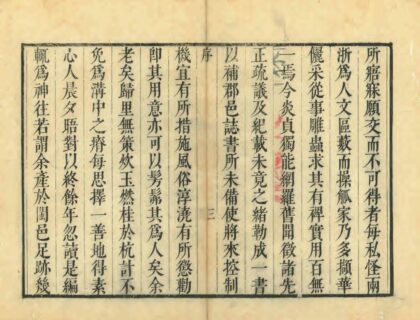 所寤寐願交而不可得者每私怪兩
浙為人文區藪而操觚家乃多擷華
儷采從事雕蟲求其有裨實用百無
一焉今炎貞獨能網羅舊聞徵諸先
正疏議及紀載未竟之緒勒成一書
以補郡邑誌書所未備使將來控制
序
三
機宜有所措施風俗淳澆有所懲勸
卽其用意亦可以髣髴其為人矣余
老矣歸里無策炊玉燃桂於杭計不
免為溝中之瘠每思擇一善地得素
心人晨夕晤對以終餘年忽讀是編
輒為神往若謂余產於閩邑足跡幾